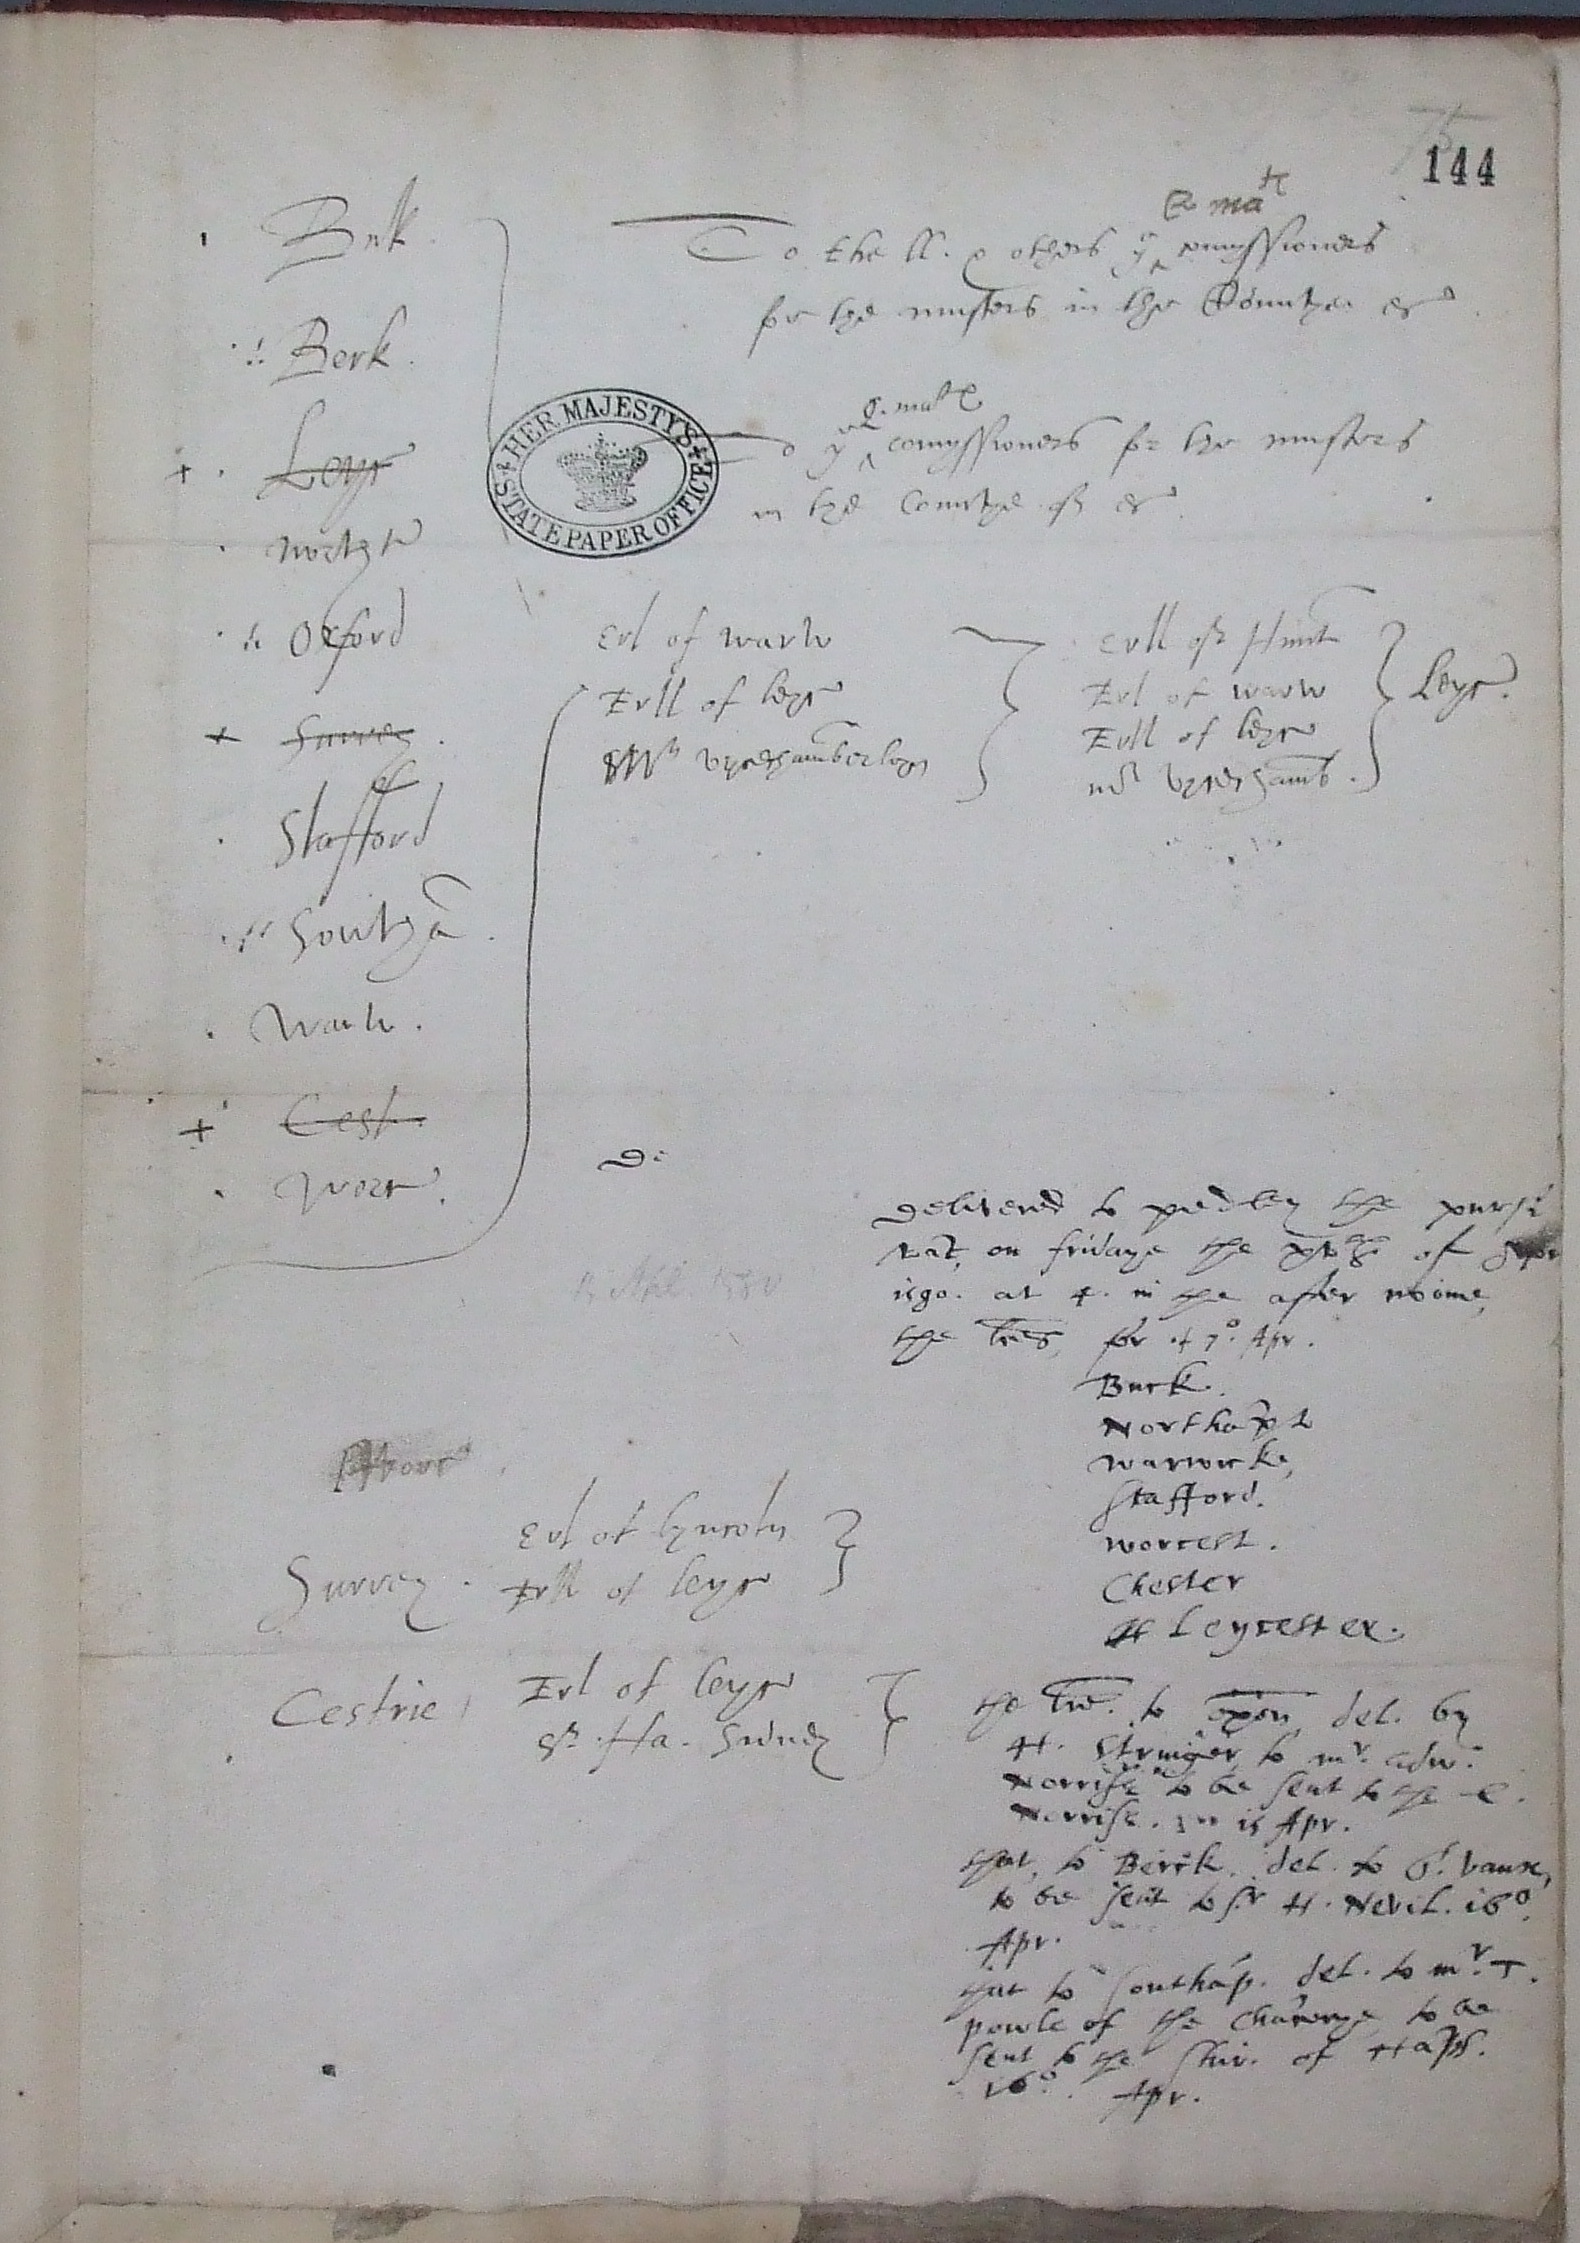 144
Buk.
Berk.
Leyc
Northt
Oxford
Surrey
Stafford
Southa
Warw.
Cest.
Worc.
Q ma
To the ll. & others ye comyssioners
for the musters in the Countye
Q. mate
To ye comyssioners for the musters
in the Countye of
HER MAJESTY'S STATE PAPER OFFICE
Erl of warw
Erll of leyc
Mr vycechamberleyn
Erll of Hunt
Erl of warw
Erll of leyc
mr vycechamb.
Leyc.
De
Delivered to pedley the pursi
vat, on fridaye the of Apr
1580. at 4. in the after noone,
the lres, for Apr.
Buck.
Northapt
Warwicke,
Stafford.
Worcest.
Chester
Leycester.
Surrey.
Erl of Lyncoln
Erll of leyc
Cestrie
Erl of leyc
Sr. Ha. Sidney
the lre. to oxon, del. by
H. Stringer, to mr. edw.
Norrise to be sent to the L.
Norrise. 15 Apr.
that, to Berck. del. to vaux,
to be sent to Sr H. Nevil. 16o.
Apr.
that to Southap. del. to mr. T.
powle of the Chancerye to be
sent to the Shir. of Hapsh.
16o. Apr.